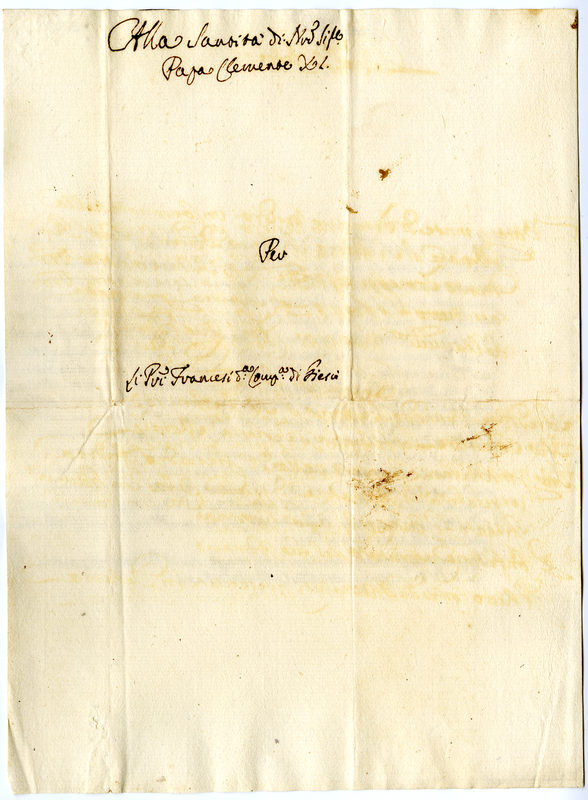 Alla Santità di N.ro Sig.re
Papa Clemente XI.
Per
Li P.ri Francesi d.a Comp.a di Giesù